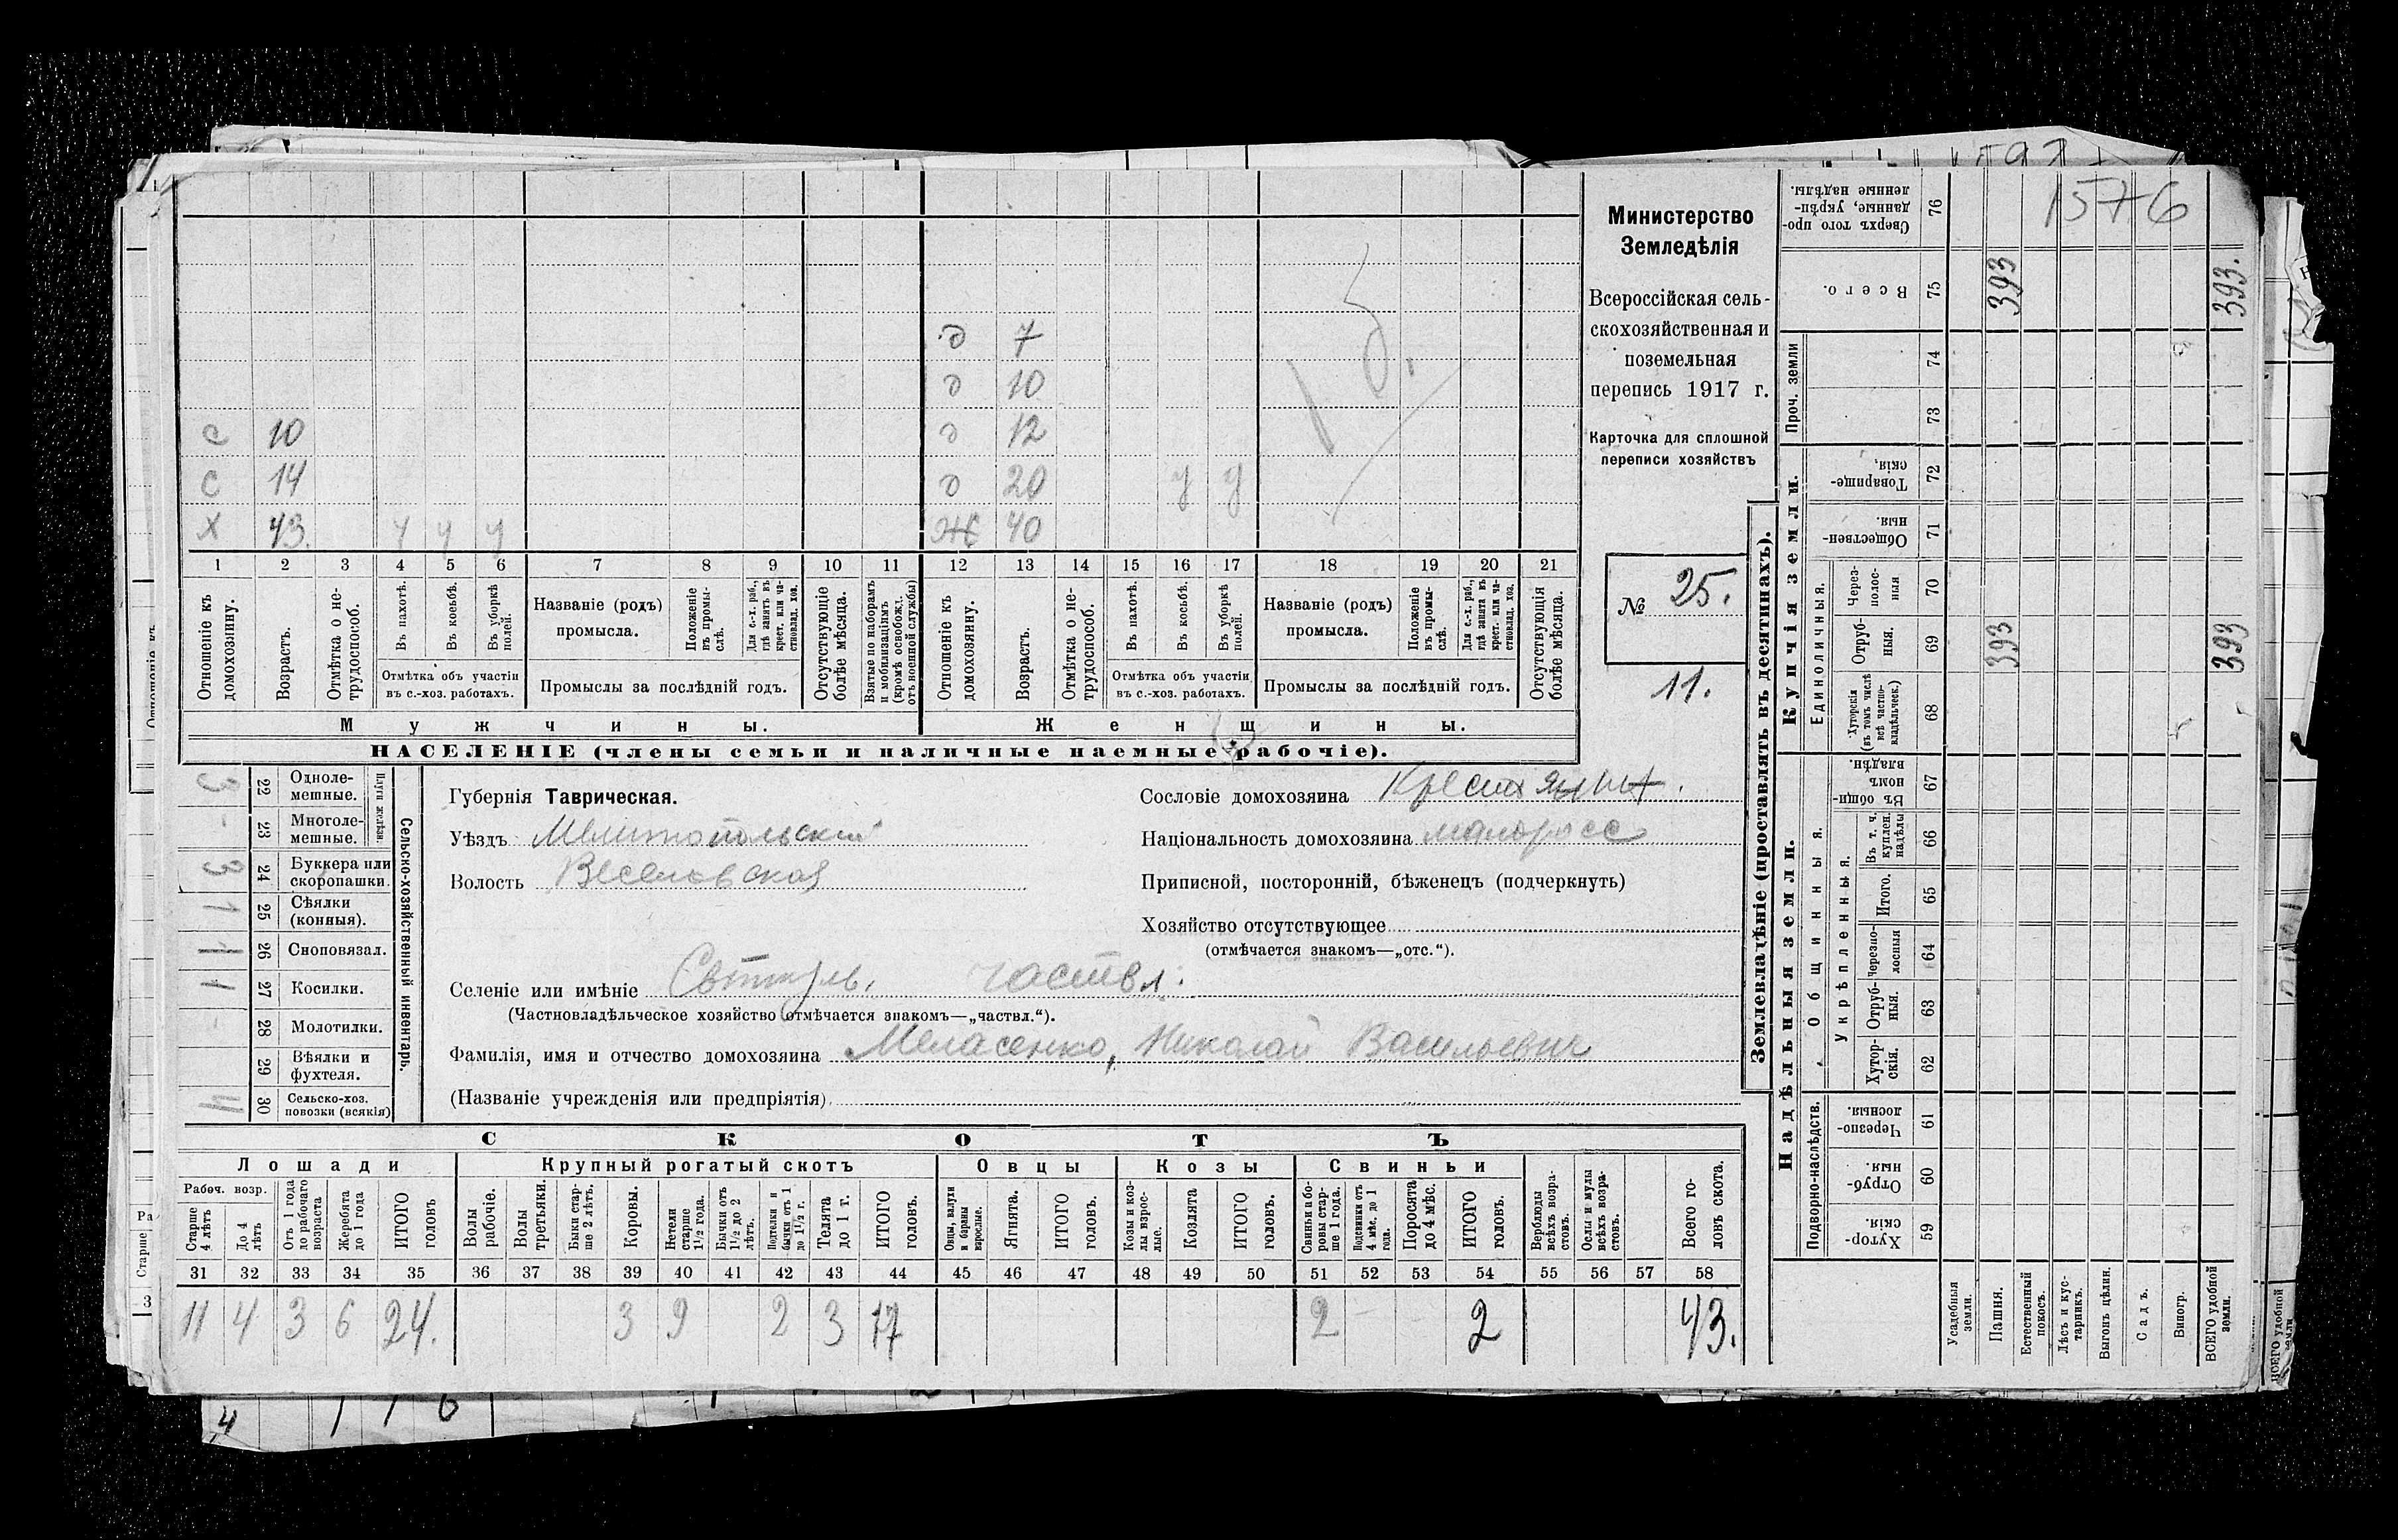 1576
Министерство
Земледѣлія
Всероссійская сель-
скохозяйственная и
поземельная
перепись 1917 г.
Карточка для сплошной
переписи хозяйствъ
№ 25.
11.
д 7
д 10
с 10 д 12
с 14 д 20 у у
х 43. у у у ж 40
1 2 3 4 5 6 7 8 9 10 11 12 13 14 15 16 17 18 19 20 21
Отношеніе къ домохозяину.
Возрастъ.
Отмѣтка о не-
трудоспособ.
Въ пахотѣ.
Въ косьбѣ.
Въ уборкѣ полей.
Отмѣтка объ участіи
въ с.-хоз. работахъ.
Названіе (родъ)
промысла.
Положеніе въ промы-
слѣ.
Для с.-х. раб., гдѣ занятъ въ крест. или ча-
стновлад. хоз.
Промыслы за послѣдній годъ.
Отсутствующіе болѣе мѣсяца.
Взятые по наборамъ и мобилизаціямъ (кромѣ освобожд. отъ военной службы)
Отношеніе къ домохозяину.
Возрастъ.
Отмѣтка о не-
трудоспособ.
Въ пахотѣ.
Въ косьбѣ.
Въ уборкѣ полей.
Отмѣтка объ участіи
въ с.-хоз. работахъ.
Названіе (родъ)
промысла.
Положеніе въ промы-
слѣ.
Для с.-х. раб., гдѣ занята въ крест. или ча-
стновлад. хоз.
Промыслы за послѣдній годъ.
Отсутствующія болѣе мѣсяца.
Мужчины.
Женщины.
НАСЕЛЕНІЕ (члены семьи и наличные наемные рабочіе).
Сельско-хозяйственный инвентарь.
Плуги желѣзн.
3 22 Одноле-
мешные.
- 23 Многоле-
мешные.
3 24 Буккера или
скоропашки.
1 25 Сѣялки
(конныя).
1 26 Сноповязал.
1 27 Косилки.
- 28 Молотилки.
29 Вѣялки и
фухтеля.
4 30 Сельско-хоз.
повозки (всякія)
Губернія Таврическая.
Уѣздъ Мелитопольскій
Волость Веселовская
Сословіе домохозяина Крестьянин.
Національность домохозяина малоросс
Приписной, посторонній, бѣженецъ (подчеркнуть)
Хозяйство отсутствующее
(отмѣчается знакомъ—„отс.“).
Селеніе или имѣніе частвл.
(Частновладѣльческое хозяйство отмѣчается знакомъ—„частвл.“).
Фамилія, имя и отчество домохозяина Меласенко, Николай Васильевич
(Названіе учрежденія или предпріятія)
СКОТЪ
Лошади
Крупный рогатый скотъ
Овцы
Козы
Свиньи
Рабоч. возр.
Старше 4 лѣтъ
До 4 лѣтъ
Отъ 1 года до рабочаго возраста
Жеребята до 1 года
ИТОГО головъ
Волы рабочіе.
Волы третьяки.
Быки стар-
ше 2 лѣтъ.
Коровы.
Нетели старше 1½ года.
Бычки отъ 1½ до 2 лѣтъ.
Подтелки и бычки отъ 1 до 1½ г.
Телята до 1 г.
ИТОГО головъ.
Овцы, валухи и бараны взрослые.
Ягнята.
ИТОГО головъ.
Козы и коз-
лы взрос-
лые.
Козлята
ИТОГО головъ.
Свиньи и бо-
ровы стар-
ше 1 года.
Подсвинки отъ 4 мѣс. до 1 года.
Поросята до 4 мѣс.
ИТОГО головъ.
Верблюды всѣхъ возра-
стовъ.
Ослы и мулы всѣхъ возра-
стовъ.
Всего го-
ловъ скота.
31 32 33 34 35 36 37 38 39 40 41 42 43 44 45 46 47 48 49 50 51 52 53 54 55 56 57 58
11 4 3 6 24. 3 9 2 3 17 2 - 2 43.
Землевладѣніе (проставлять въ десятинахъ).
Купчія земли.
Надѣльныя земли.
Сверхъ того про-
данные, укрѣп-
ленные надѣлы.
76
Всего.
75
393
393.
Проч. земли
74
73
Товарище-
скія.
72
Обществен-
ныя.
71
Единоличныя.
Через-
полос-
ныя
70
Отруб-
ныя.
69
393
393
Хуторскія (въ томъ числѣ всѣ частно-
владѣльчес.)
68
Общинныя.
Въ общин-
номъ
владѣн.
67
Укрѣпленныя.
Въ т. ч.
куплен.
надѣлы
66
Итого.
65
Черезпо-
лосныя
64
Отруб-
ныя.
63
Хутор-
скія.
62
Подворно-наслѣдств.
Черезпо-
лосныя.
61
Отруб-
ныя.
60
Хутор-
скія.
59
Усадебныя земли.
Пашня.
Естественный покосъ.
Лѣсъ и кус-
тарникъ.
Выгонъ цѣлин.
Садъ.
Виногр.
ВСЕГО удобной земли.